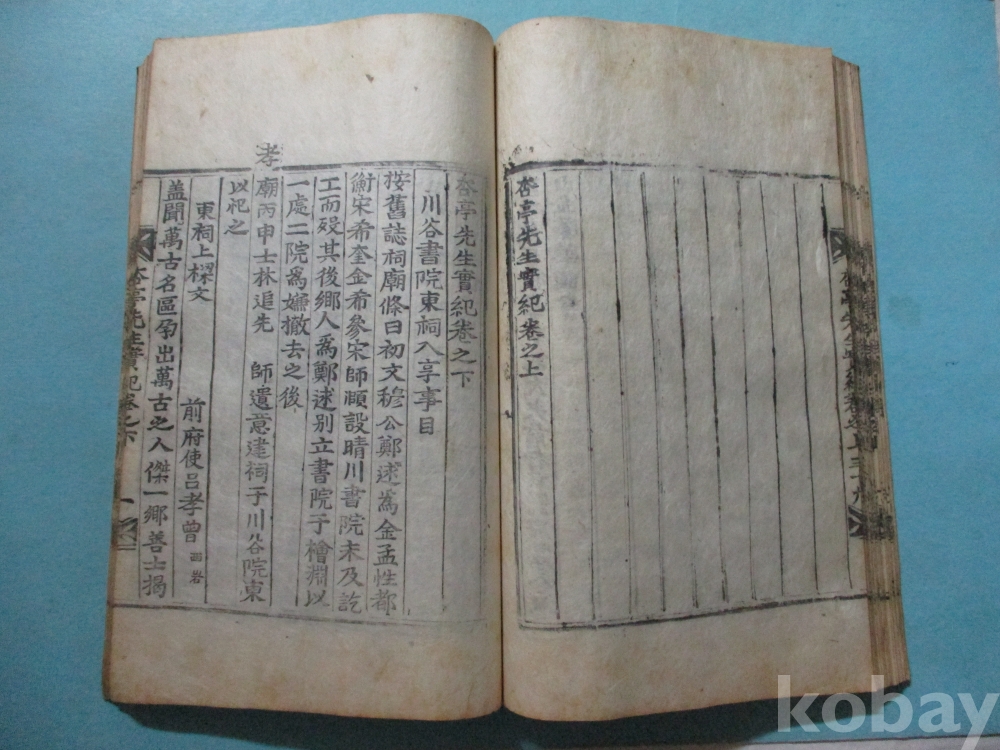 杏亭先生實紀卷之上
杏亭先生實紀卷之下
川谷書院東祠入享事目
按舊誌祠廟條曰初文穆公鄭逑爲金孟性都
衡宋希奎金希參宋師頤設晴川書院未及訖
工而歿其後鄕人爲鄭逑別立書院于檜淵以
一處二院爲嫌撤去之後
孝廟丙申士林追先 師遺意建祠于川谷院東
以祀之
東祠上樑文
前府使呂孝曾
盖聞萬古名區孕出萬古之人傑一鄕善士揭
杏亭先生實紀卷之下 一
kobay